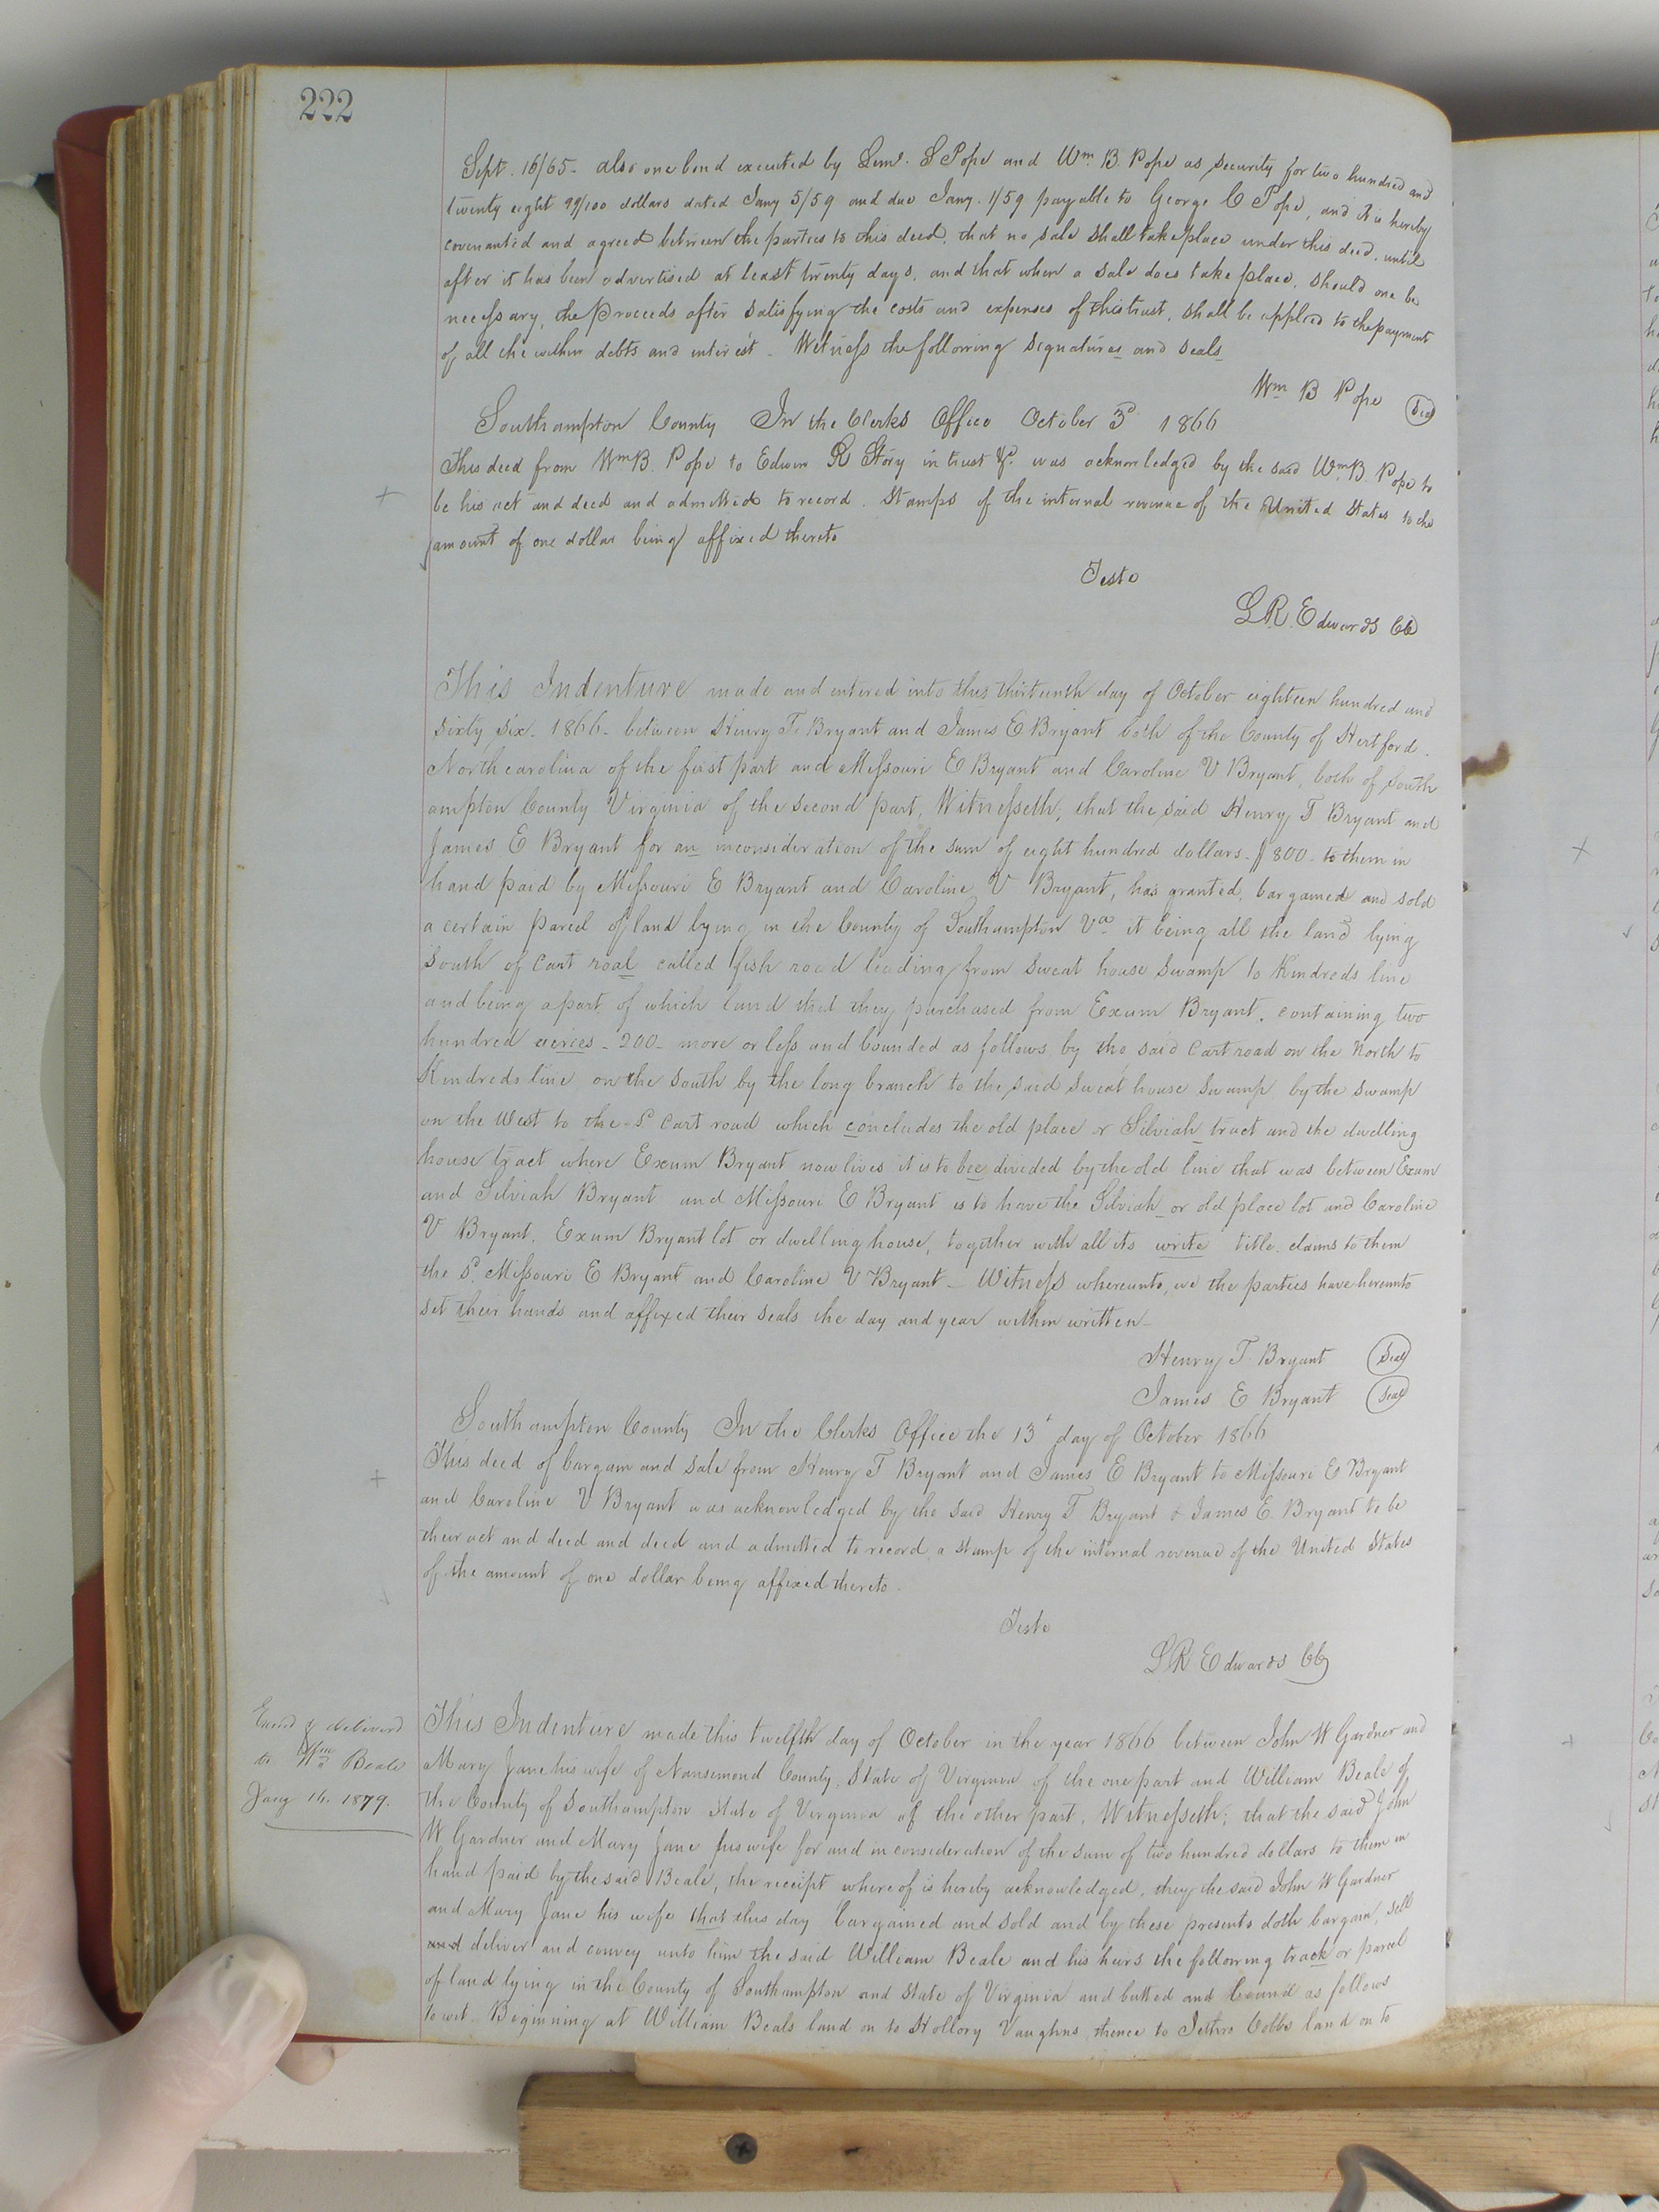 222
Sept. 16/65 - also one bond executed by Lem. S Pope and Wm B. Pope as security for two hundred and
twenty eight 99/100 dollars dated Jany 5/59 and due Jany. 1/59 payable to George C Pope, and it is hereby
covenanted and agreed between the parties to this deed, that no sale shall take place under this deed, until
after it has been advertised at least twenty days, and that when a sale does take place, should one be
necessary, the proceeds after satisfying the costs and expenses of this trust, shall be applied to the payment
of all the within debts and interest - Witness the following signatures and seals
Wm B Pope Seal
Southampton County In the Clerks Office October 3d 1866
This deed from Wm B. Pope to Edwin R Story in trust &c. was acknowledged by the said Wm B. Pope to
be his act and deed and admitted to record. Stamps of the internal revenue of the United States to the
amount of one dollar being affixed thereto
Teste
L.R. Edwards CC
This Indenture made and entered into this thirteenth day of October eighteen hundred and
sixty six - 1866 - between Henry T. Bryant and James E Bryant both of the County of Hertford -
North carolina of the first part and Missouri E Bryant and Caroline V Bryant, both of South
ampton County Virginia of the second part, Witnesseth, that the said Henry T Bryant and
James E Bryant for an inconsideration of the sum of eight hundred dollars - $800 - to them in
hand paid by Missouri E Bryant and Caroline V Bryant, has granted, bargained and sold
a certain parcel of land lying in the County of Southampton Va it being all the land lying
South of Cart roal called fish road leading from Sweat house Swamp to Kindreds line
and being a part of which land that they purchased from Exum Bryant, containing two
hundred acries - 200 - more or less and bounded as follows by the said Cart road on the North to
Kindreds line on the South by the long branch to the said Sweat house Swamp by the swamp
on the West to the sd Cart road which concludes the old place or Silviah tract and the dwelling
house tract where Exum Bryant now lives it is to bee divided by the old line that was between Exum
and Silviah Bryant and Missouri E Bryant is to have the Silviah or old place lot and Caroline
V Bryant, Exum Bryant lot or dwelling house, together with all its write title claims to them
the sd. Missouri E Bryant and Caroline V Bryant - Witness whereunto, we the parties have hereunto
set their hands and affixed their seals the day and year within written -
Henry T Bryant Seal
James E Bryant Seal
Southampton County In the Clerks Office the 13t day of October 1866
This deed of bargain and sale from Henry T Bryant and James E Bryant to Missouri E Bryant
and Caroline V Bryant was acknowledged by the said Henry T Bryant & James E. Bryant to be
their act and deed and deed and admitted to record a stamp of the internal revenue of the United States
of the amount of one dollar being affixed thereto.
Teste
L.R Edwards CC
Examd & delivered
to Wm Beale
Jany 16. 1879.
This Indenture made this twelfth day of October in the year 1866 between John W Gardner and
Mary Jane his wife of Nansemond County, State of Virginia of the one part and William Beale of
the County of Southampton State of Virginia of the other part, Witnesseth; that the said John
W Gardner and Mary Jane his wife for and in consideration of the sum of two hundred dollars to them in
hand paid by the said Beale, the receipt whereof is hereby acknowledged, they the said John W Gardner
and Mary Jane his wife that this day bargained and sold and by these presents doth bargain, sell
and deliver and convey unto him the said William Beale and his heirs the following track or parcel
of land lying in the County of Southampton and State of Virginia and butted and bound as follows
to wit. Beginning at William Beals land on to Hollory Vaughns, thence to Jethro Cobbs land on to